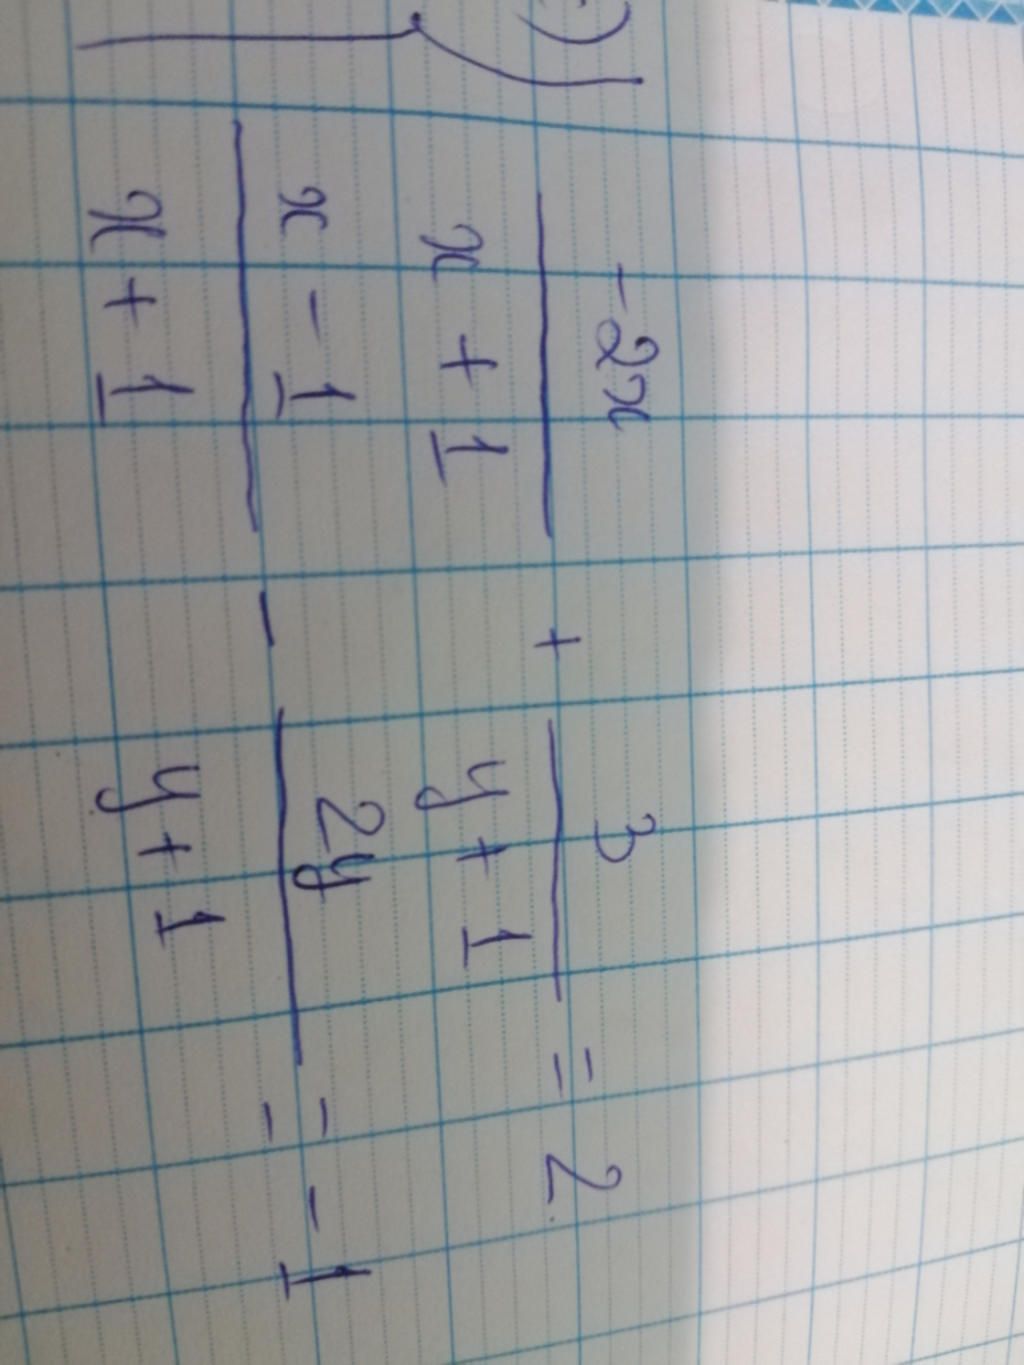 -2x/(x + 1) + 3/(y + 1) = 2
(x - 1)/(x + 1) - 2y/(y + 1) = -1